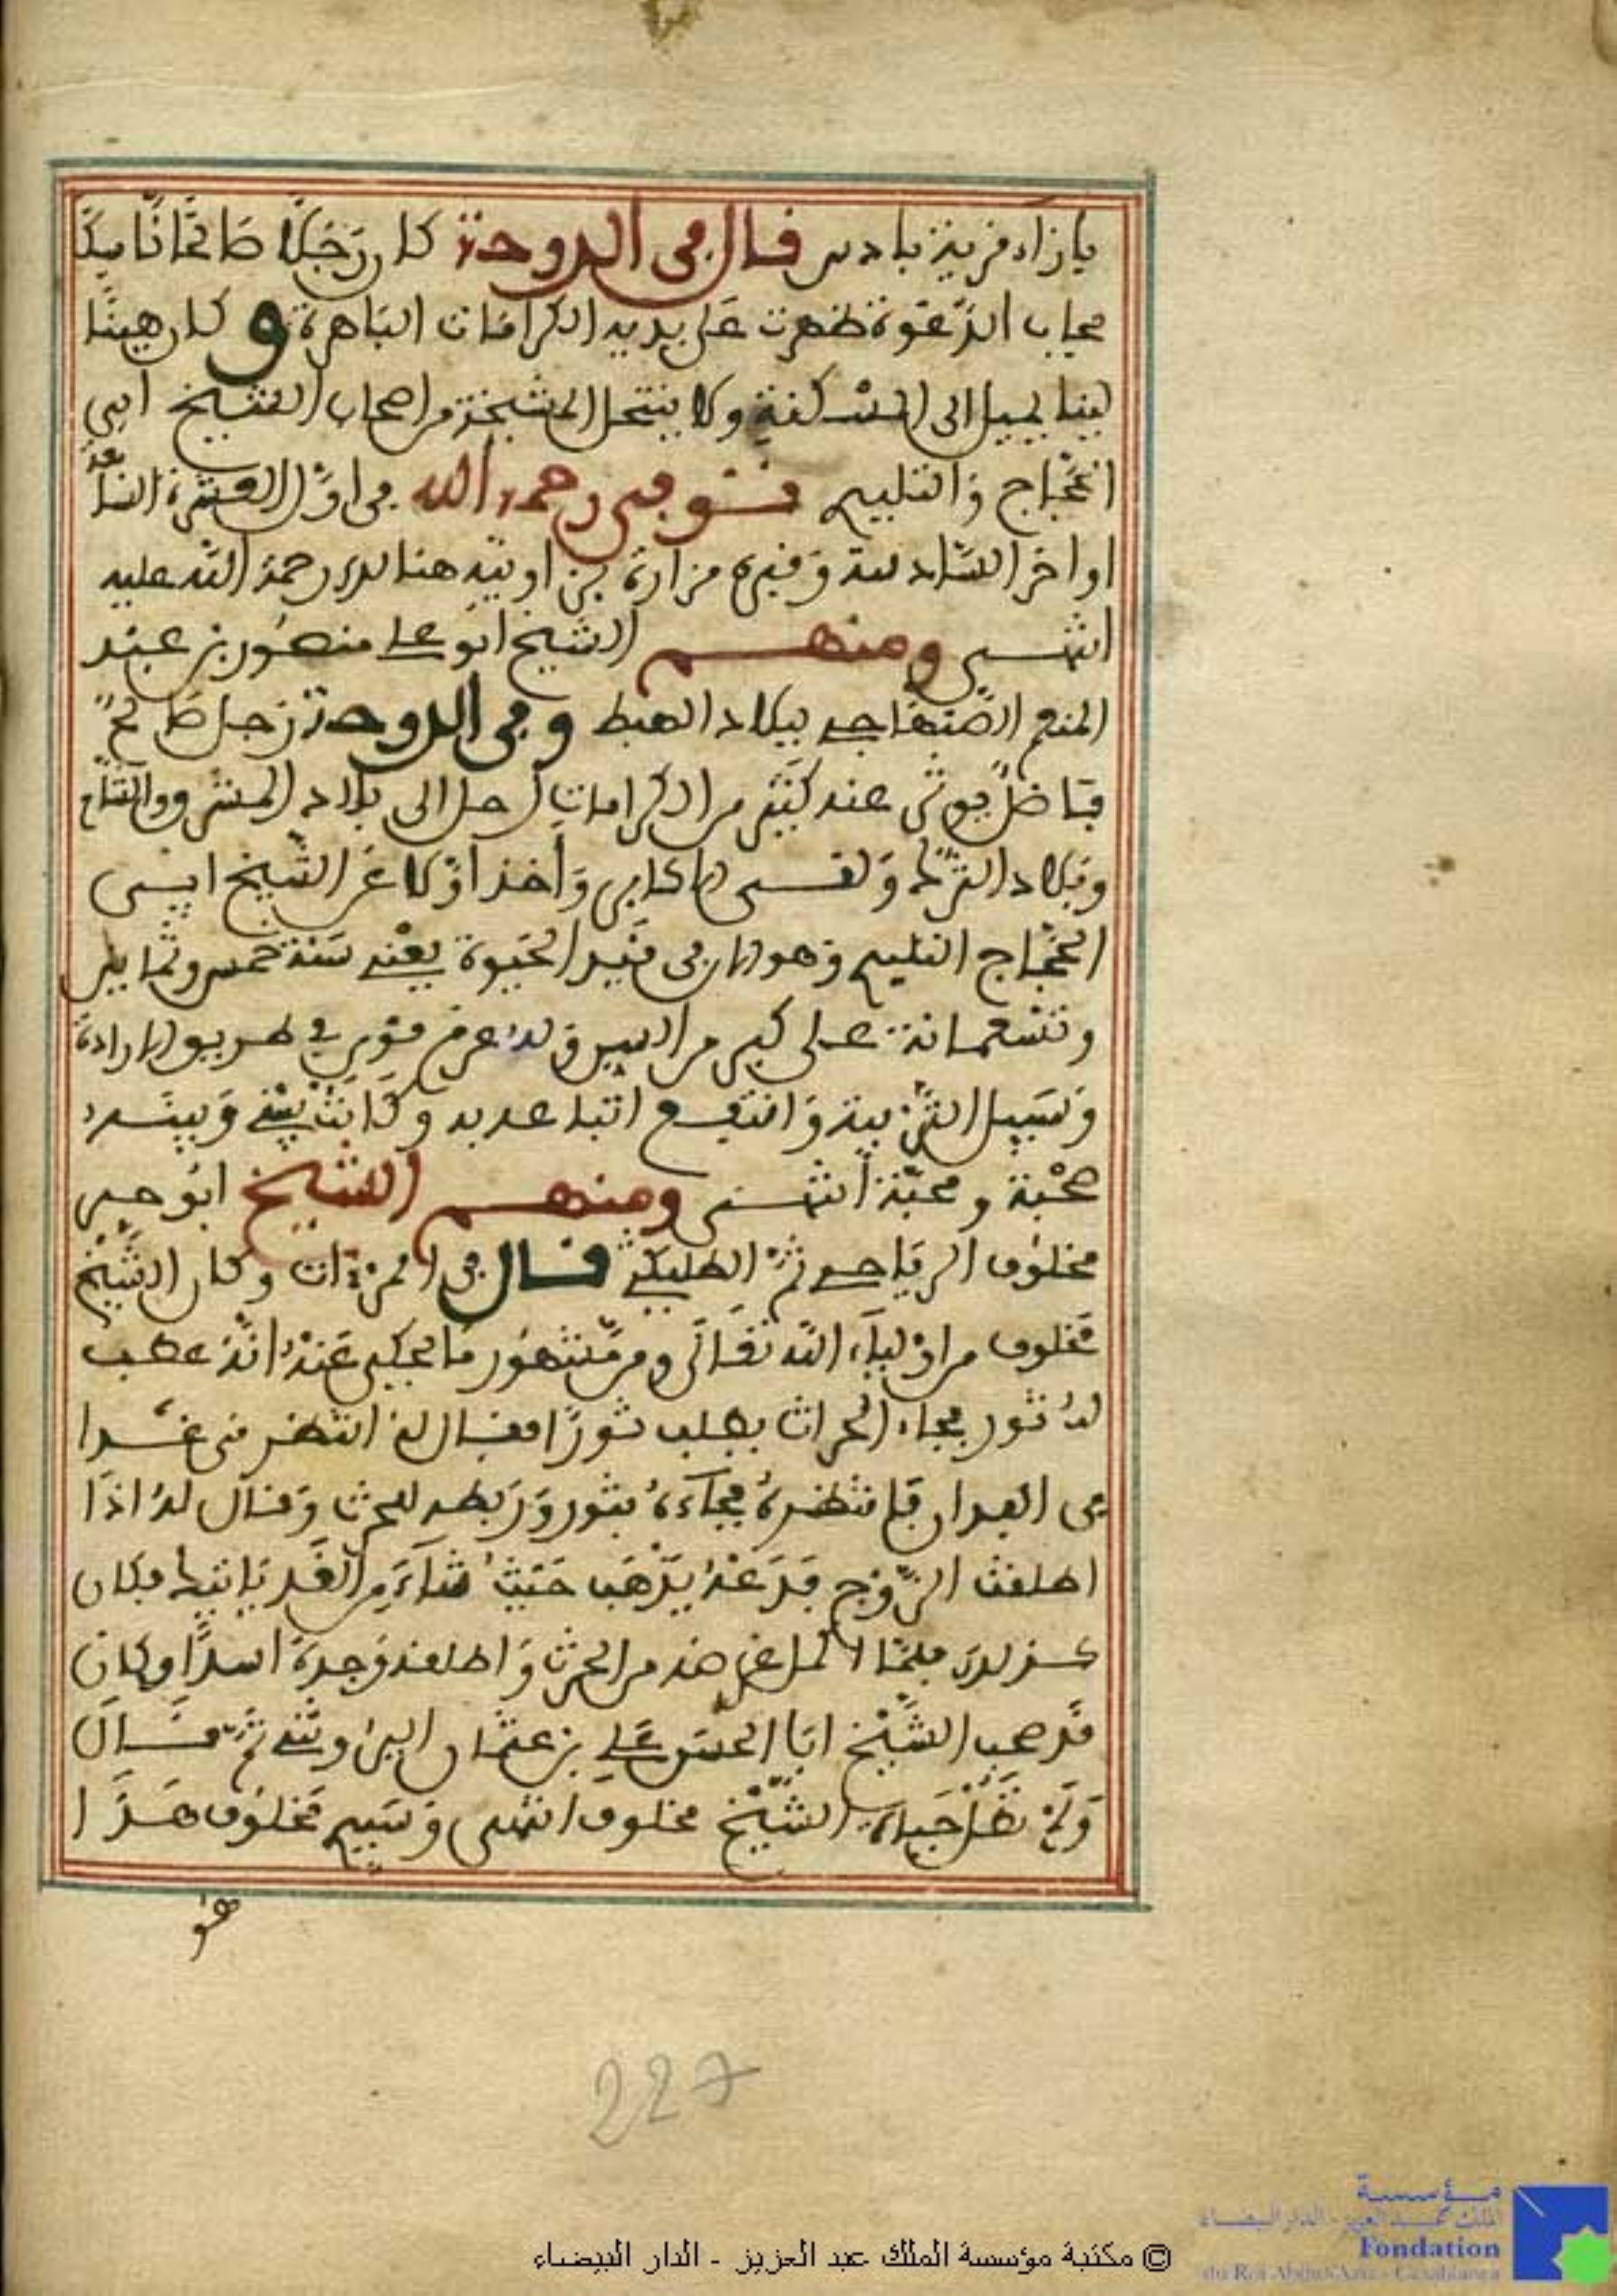 بازاء قرية بادس قال في الدوحة كان رجلا صالحا ناسكا
مجاب الدعوة ظهرت على يديه الكرامات الباهرة وكان هينا
لينا يميل الى المسكنة ولا ينتحل المشيخة من اصحاب الشيخ ابي
الحجاج والتليدي فتوفي رحمه الله في اول العشرة التاسعة
اواخر السادسة وقبره مزارة بزاويته هنالك رحمة الله عليه
انتهى ومنهم الشيخ ابو علي منصور بن عبد
المنعم الصنهاجي ببلاد الهبط وفي الدوحة رجل صالح
فاضل يوثر عنه كثير من الكرامات رحل الى بلاد المشرق والشام
وبلاد الترك ولقي الاكابر وأخذ اولا عن الشيخ ابي
الحجاج التليدي وهو الان في قيد الحيوة يعني سنة خمس وثمانين
وتسعمائة على كبر من السن وله عزم قوي في طريق الارادة
وسبيل التربية وانتفع اتباعه به وكانت بيني وبينه
صحبة ومحبة انتهى ومنهم الشيخ ابو
مخلوف الرياحي ثم الطليقي قال في وكان الشيخ
مخلوف من اولياء الله تعالى ومن مشهور ما يحكى عنه انه عطب
له ثور فجاء الحراث يطلب ثورا فقال له انتظرني غدا
في الفدان فانتظره فجاءه بثور وربطه للحرث وقال له اذا
اطلقت الزوج فدعه يذهب حيث شاء ومن الغد ياتيك فكان
كذلك فلما اكمل غرضه من الحرث واطلقه وجده اسدا وكان
قد صحب الشيخ ابا الحسن علي بن عثمان ثم قال
ولم تطل حياة الشيخ مخلوف انتهى وسيدي مخلوف هذا
هو
227
© مكتبة مؤسسة الملك عبد العزيز - الدار البيضاء
مؤسسة
الملك عبد العزيز - الدار البيضاء
Fondation
du Roi Abdul-Aziz - Casablanca